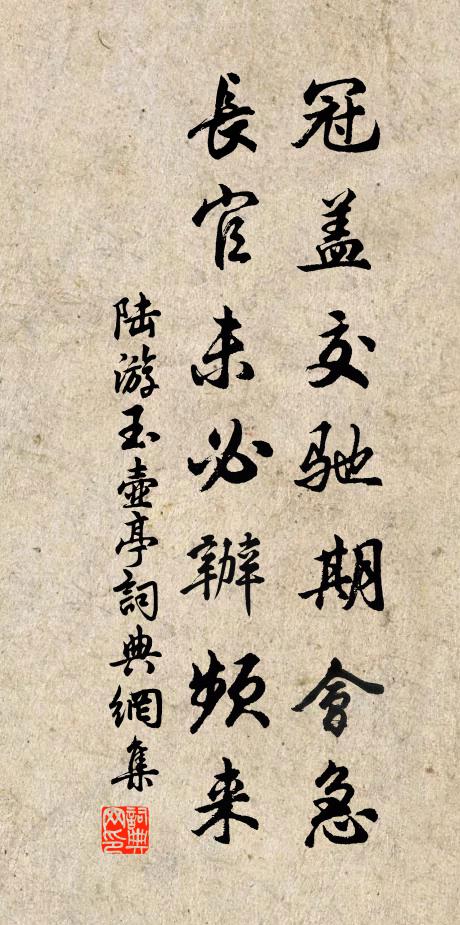 冠盖交驰期會急
長官未必辦頻来
陆游玉壺亭詞典網集
詞典网印